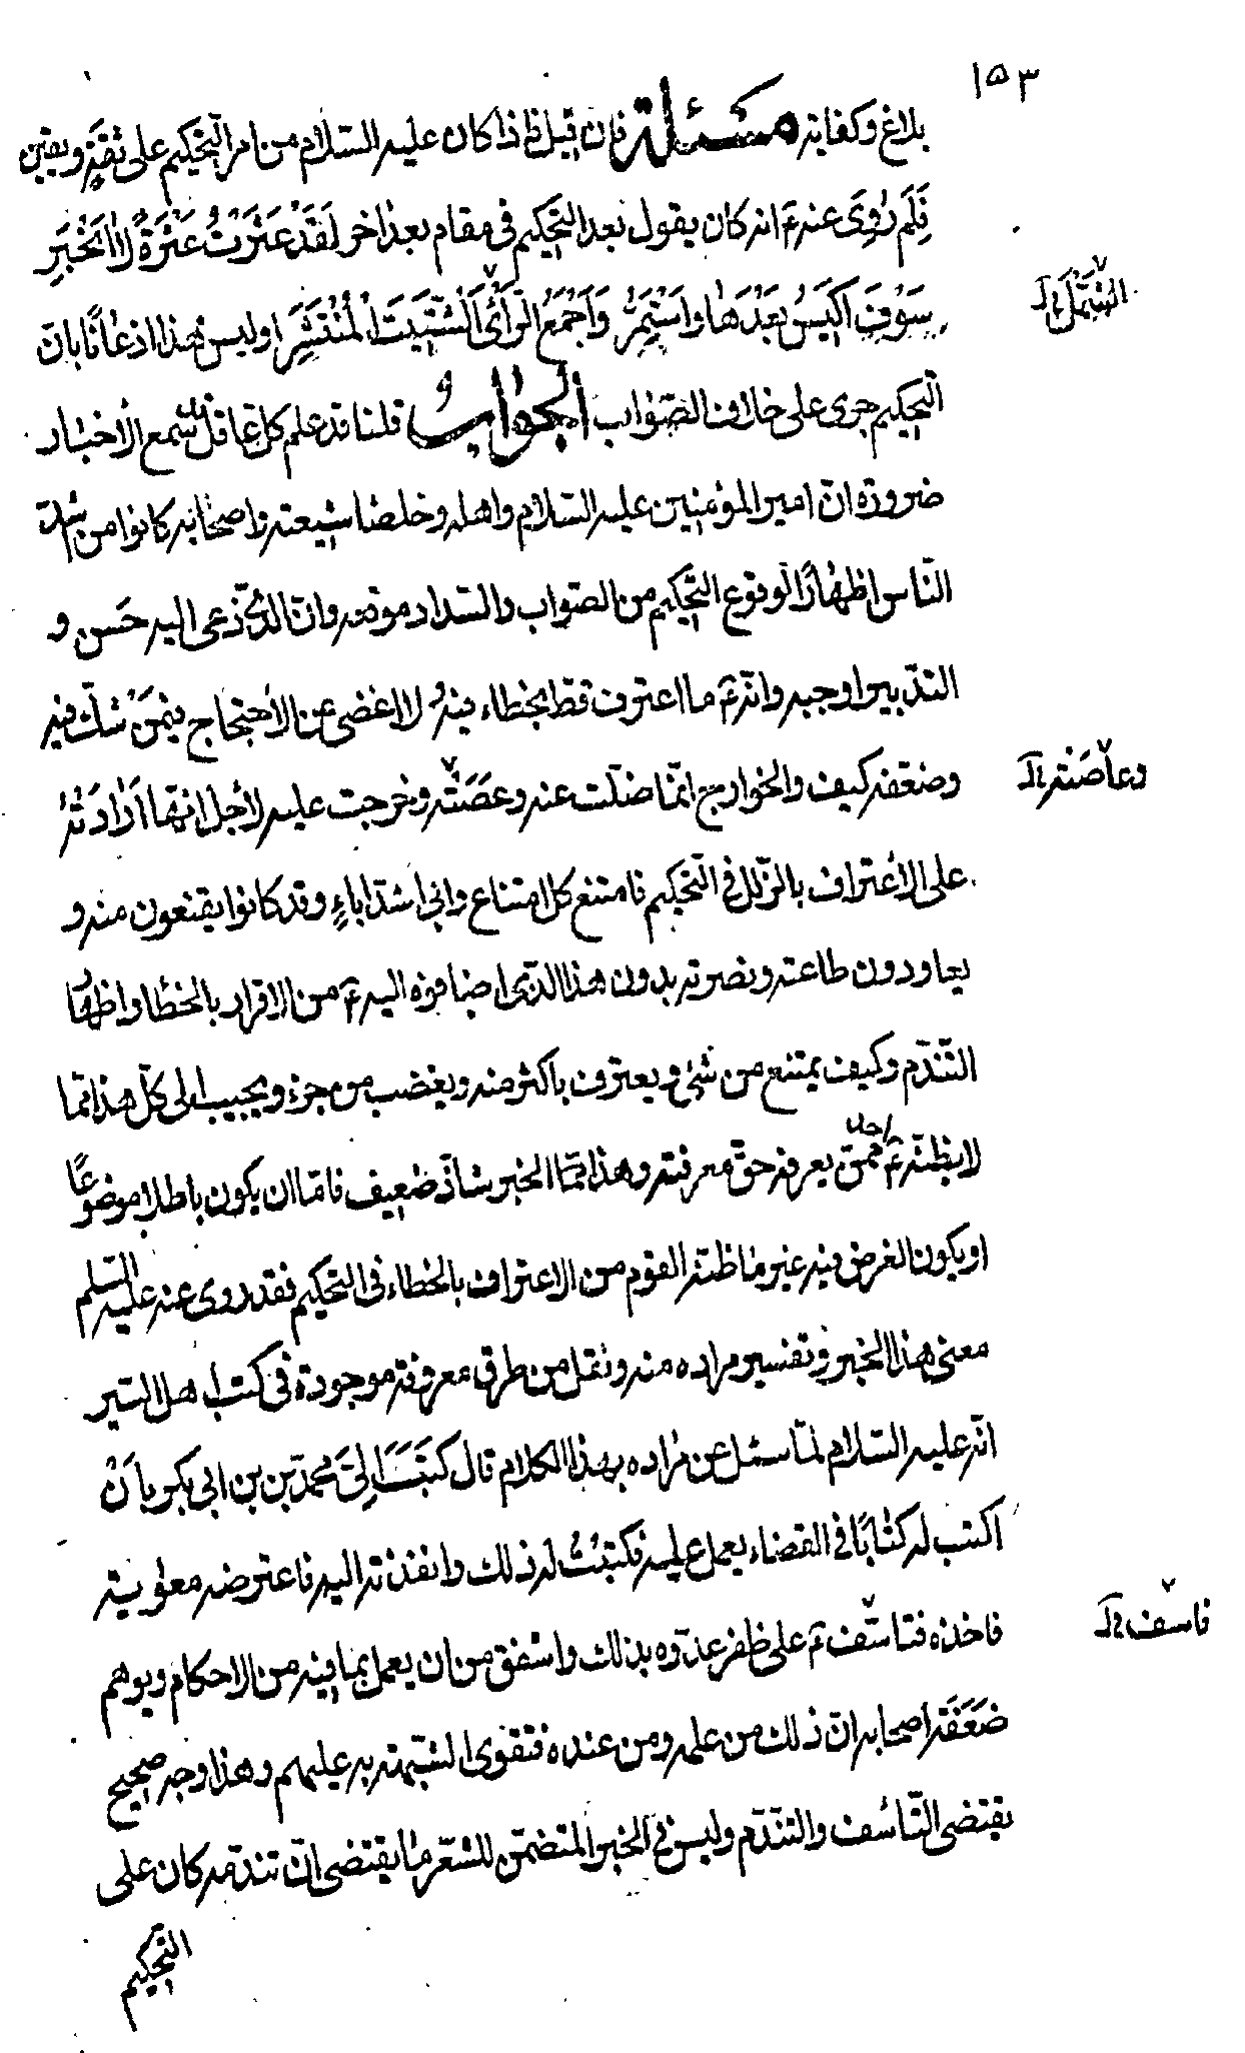 ١٥٣
بلاغ وكفاية مسئلة فان قيل فاذا كان عليه السلام من امر التحكيم على ثقة ويقين
فَلِمَ رُوِىَ عنه ع انه كان يقول بعد التحكيم فى مقام بعد اخر لَقَدْ عَثَرْتُ عَثْرَةً لا اَنْجَبِر
سَوْفَ اَكيسُ بَعْدَها وَاَسْتَمِرُّ وَاَجْمَعُ الرَّأىَ الشَّتيتَ الْمُنْتَشِرَ اوليس هذا اذعانًا بانّ
الشمل خ ل
التحكيم جرى على خلاف الصّواب الجواب قلنا قد علم كلّ عاقل سمع الأخبار
ضرورة انّ امير المؤمنين عليه السلام واهله وخلصا شيعته واصحابه كانوا من اشدّ
النّاس اظهارًا لوقوع التّحكيم من الصّواب والسّداد موقعه وانّ الّذى دعى اليه حَسن و
التدّبير اوجبه وانّه ع ما اعترف قطّ بخطاء فيه ولا اغضى عن الأحتجاج فيمَنْ شكّ فيه
وضعّفه كيف والخوارج انّما ضلّت عنه وعصَتْه وخرجت عليه لأجل انّها اَرادَتْهُ
وعاصته خ ل
على الأعتراف بالزّلل فى التّحكيم فامتنع كلّ امتناع وابى اشدّ اباءٍ وقد كانوا يقنعون منه و
يعاودون طاعته ونصرته بدون هذا الّذى اضافوه اليه ع من الاقرار بالخطا واظهار
التّندّم وكيف يمتنع من شئ ويعترف باكثر منه ويغضب من جزء ويجيب الى كلّ هذا ممّا
لا يظنّه ع احد ممّن يعرفه حقّ معرفته وهذا الخبر شاذّ ضعيف فامّا ان يكون باطلا موضوعًا
او يكون الغرض فيه غير ما ظنّه القوم من الاعتراف بالخطاء فى التحكيم فقد روى عنه عليه السّلم
معنى هذا الخبر وتفسير مراده منه ونقل من طرق معروفة موجودة فى كتب اهل السّير
انّه عليه السّلام لمّا سئل عن مراده بهذا الكلام قال كَتَبَ اِلَىَّ محمّد بن ابى بكر باَنْ
اكتب له كتابًا فى القضاء يعمل عليه فكتبْتُ له ذلك وانفذته اليه فاعترضه معوية
فاخذه فتاسّف ع على ظفر عدوّه بذلك واشفق من ان يعمل بما فيه من الاحكام ويوهم
فاسف خ ل
ضَعَفَة اصحابه انّ ذلك من علمه ومن عنده فتقوى الشبّهة به عليهم وهذا وجه صحيح
يقتضى التّاسّف والتّندّم وليس فى الخبر المتضمّن للشّعر ما يقتضى انّ تندّمه كان على
التحكيم